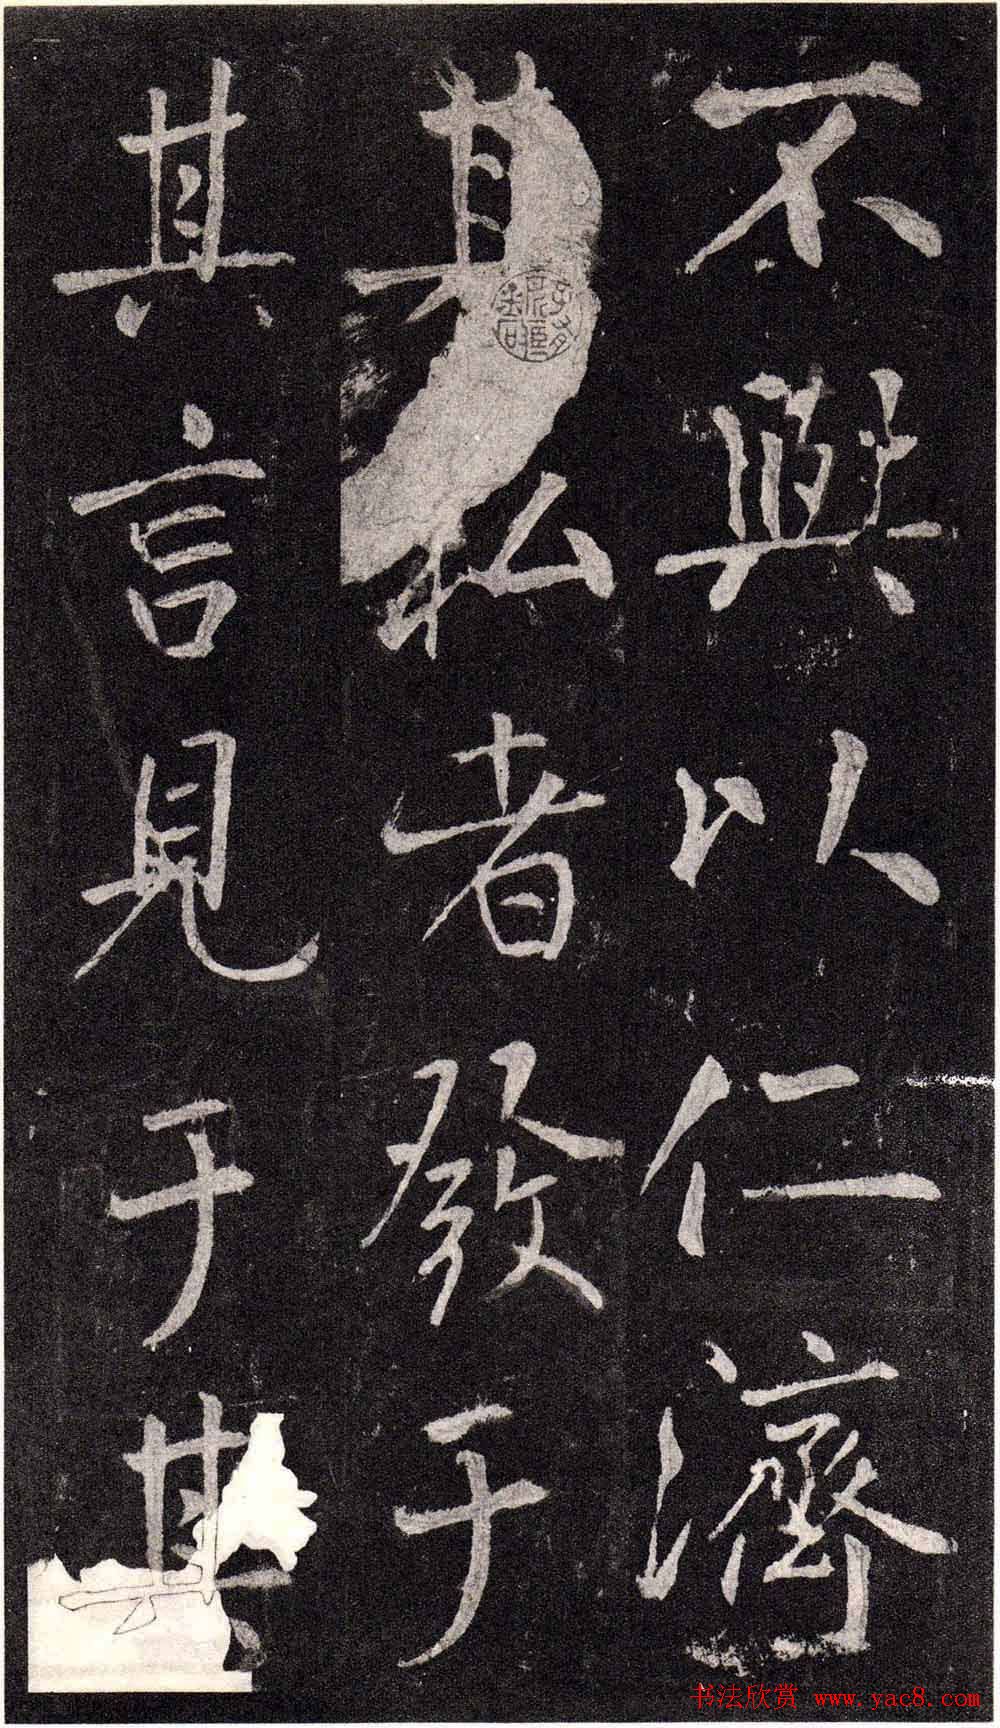 不與以仁濟
其私者發于
其言見于其
书法欣赏 www.yac8.com